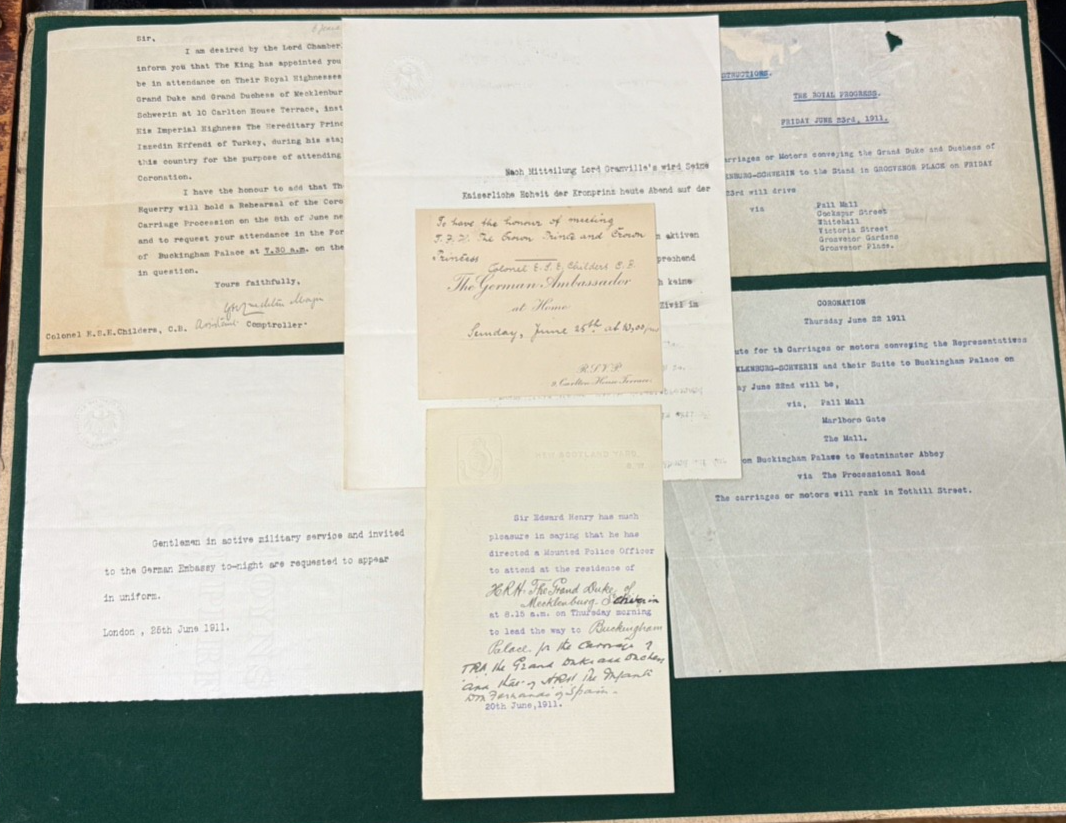 Sir,
I am desired by the Lord Chamber
inform you that The King has appointed you
be in attendance on Their Royal Highnesses
Grand Duke and Grand Duchess of Mecklenbur
Schwerin at 10 Carlton House Terrace, inst
His Imperial Highness The Hereditary Princ
Izzedin Effendi of Turkey, during his stay
this country for the purpose of attending
Coronation.
I have the honour to add that Th
Equerry will hold a Rehearsal of the Coro
Carriage Procession on the 8th of June ne
and to request your attendance in the For
of Buckingham Palace at 7.30 a.m. on the
in question.
Yours faithfully,
Comptroller
Colonel E.S.E.Childers, C.B.
Nach Mitteilung Lord Granville's wird Seine
Kaiserliche Hoheit der Kronprinz heute Abend auf der
n aktiven
prechend
h keine
Zivil in
To have the honour of meeting
T.I.H. The Crown Prince and Crown
Princess
Colonel E.S.E. Childers C.B.
The German Ambassador
at Home
Sunday, June 25th at 10,00 pm
R.S.V.P.
9, Carlton House Terrace.
STRUCTIONS.
THE ROYAL PROGRESS.
FRIDAY JUNE 23rd, 1911.
arriages or Motors conveying the Grand Duke and Duchess of
ENBURG-SCHVERIN to the Stand in GROSVENOR PLACE on FRIDAY
23rd will drive
via Pall Mall
Cockspur Street
Whitehall
Victoria Street
Grosvenor Gardens
Grosvenor Place.
CORONATION
Thursday June 22 1911
ute for th Carriages or motors conveying the Representatives
KLENBURG-SCHVERIN and their Suite to Buckingham Palace on
ay June 22nd will be,
via, Pall Mall
Marlboro Gate
The Mall.
om Buckingham Palace to Westminster Abbey
via The Processional Road
The carriages or motors will rank in Tothill Street.
Gentlemen in active military service and invited
to the German Embassy to-night are requested to appear
in uniform.
London , 25th June 1911.
Sir Edward Henry has much
pleasure in saying that he has
directed a Mounted Police Officer
to attend at the residence of
H.R.H. The Grand Duke of
Mecklenburg. Schwerin
at 8.15 a.m. on Thursday morning
to lead the way to Buckingham
Palace for the Carriage of
TRH the Grand Duke and Duchess
and that of HRH The Infanti
Don Fernando of Spain.
20th June,1911.